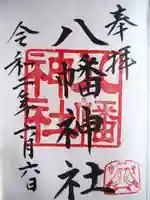 奉拝
八幡神社
令和二年一月六日